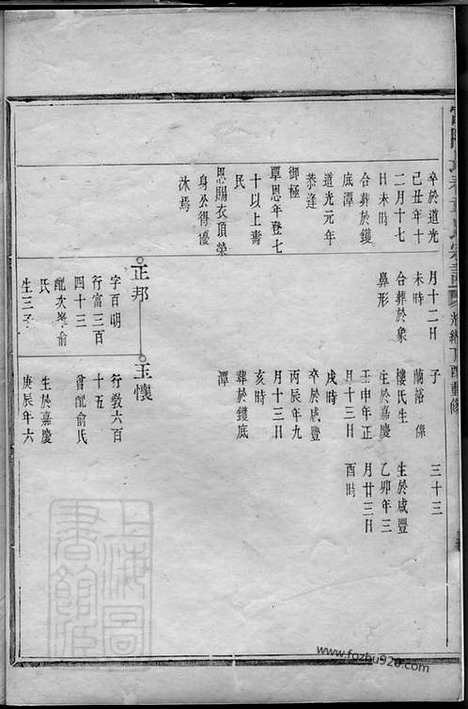 卒於道光
己丑年十
二月十七
日未時
合葬於鑊
底潭
道光元年
恭逢
御極
覃恩年登七
十以上耆
民
恩賜衣頂榮
身公得優
沐焉
月十二日
未時
合葬於象
鼻形
正邦
字百明
行富三百
四十三
配次峯俞
氏
生三子
子
蘭浴 係
樓氏生
生於嘉慶
壬申年正
月十三日
戌時
卒於咸豐
丙辰年九
月十三日
亥時
葬於鑊底
潭
主懷
行敎六百
十五
曾配俞氏
生於嘉慶
庚辰年六
三十三
生於咸豐
乙卯年三
月廿三日
酉時
光緒丁酉重修
上海圖書館藏
www.fozhu920.com